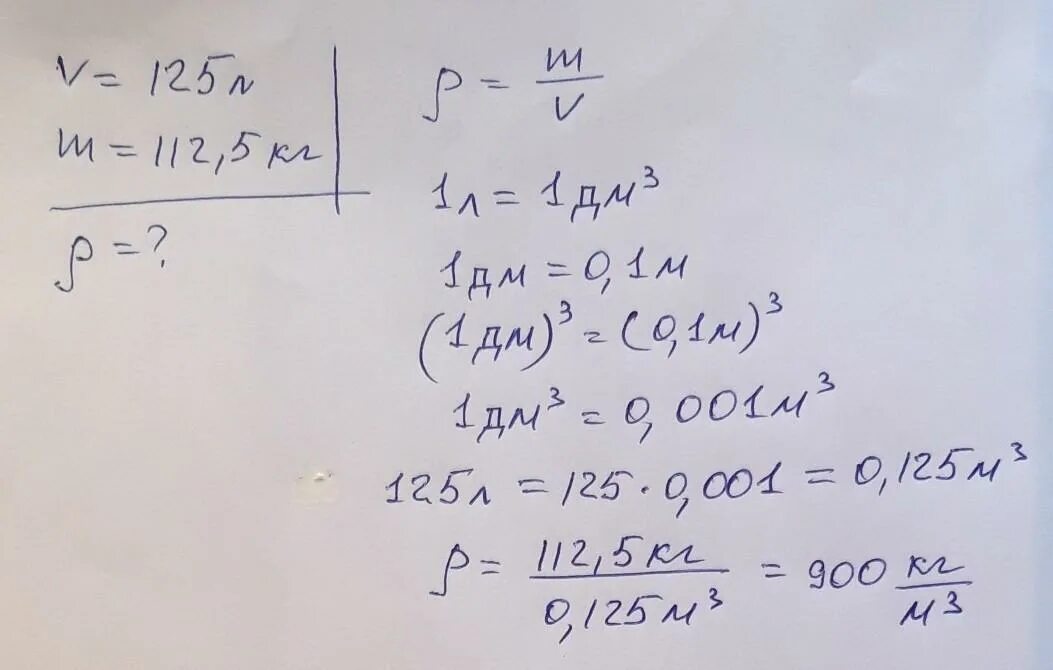 V = 125л
m = 112,5 кг
ρ = ?
ρ = m/V
1л = 1дм³
1дм = 0,1м
(1дм)³ = (0,1м)³
1дм³ = 0,001м³
125л = 125 · 0,001 = 0,125м³
ρ = 112,5кг/0,125м³ = 900 кг/м³